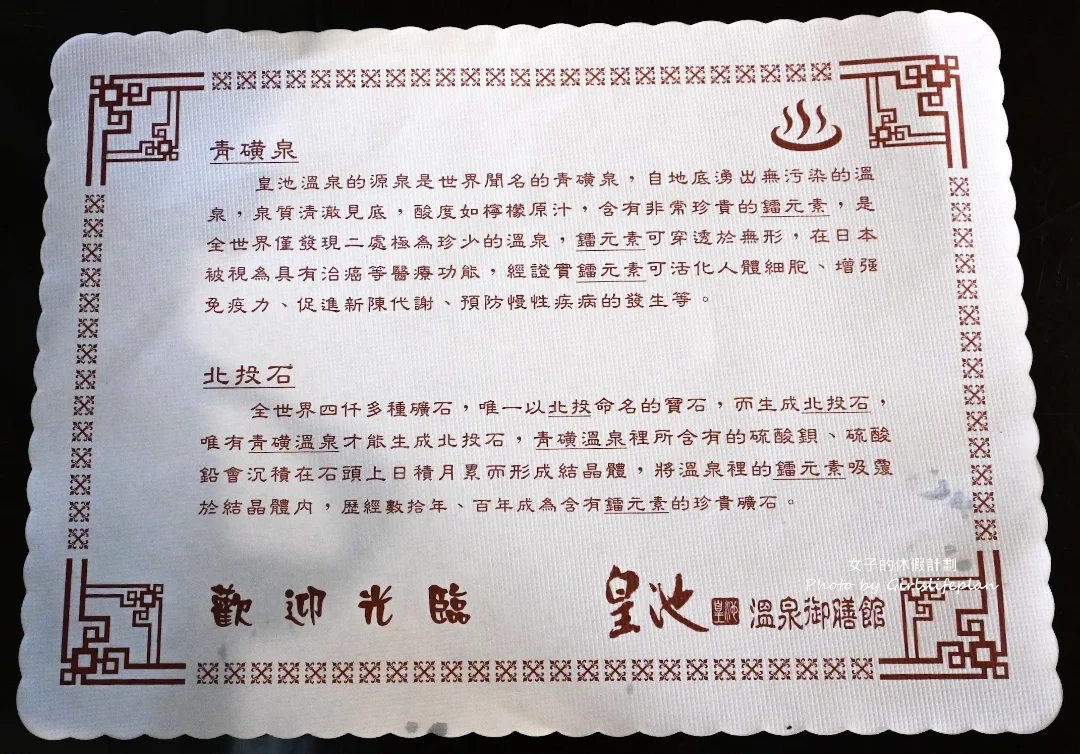 青磺泉
皇池溫泉的源泉是世界聞名的青磺泉，自地底湧出無污染的溫
泉，泉質清澈見底，酸度如檸檬原汁，含有非常珍貴的鐳元素，是
全世界僅發現二處極為珍少的溫泉，鐳元素可穿透於無形，在日本
被視為具有治癌等醫療功能，經證實鐳元素可活化人體細胞、增強
免疫力、促進新陳代謝、預防慢性疾病的發生等。
北投石
全世界四仟多種礦石，唯一以北投命名的寶石，而生成北投石，
唯有青磺溫泉才能生成北投石，青磺溫泉裡所含有的硫酸鋇、硫酸
鉛會沉積在石頭上日積月累而形成結晶體，將溫泉裡的鐳元素吸
於結晶體內，歷經數拾年、百年成為含有鐳元素的珍貴礦石。
歡迎光臨
皇池 皇池 溫泉御膳館
女子的休假計劃
Photo by Girlslifeplan